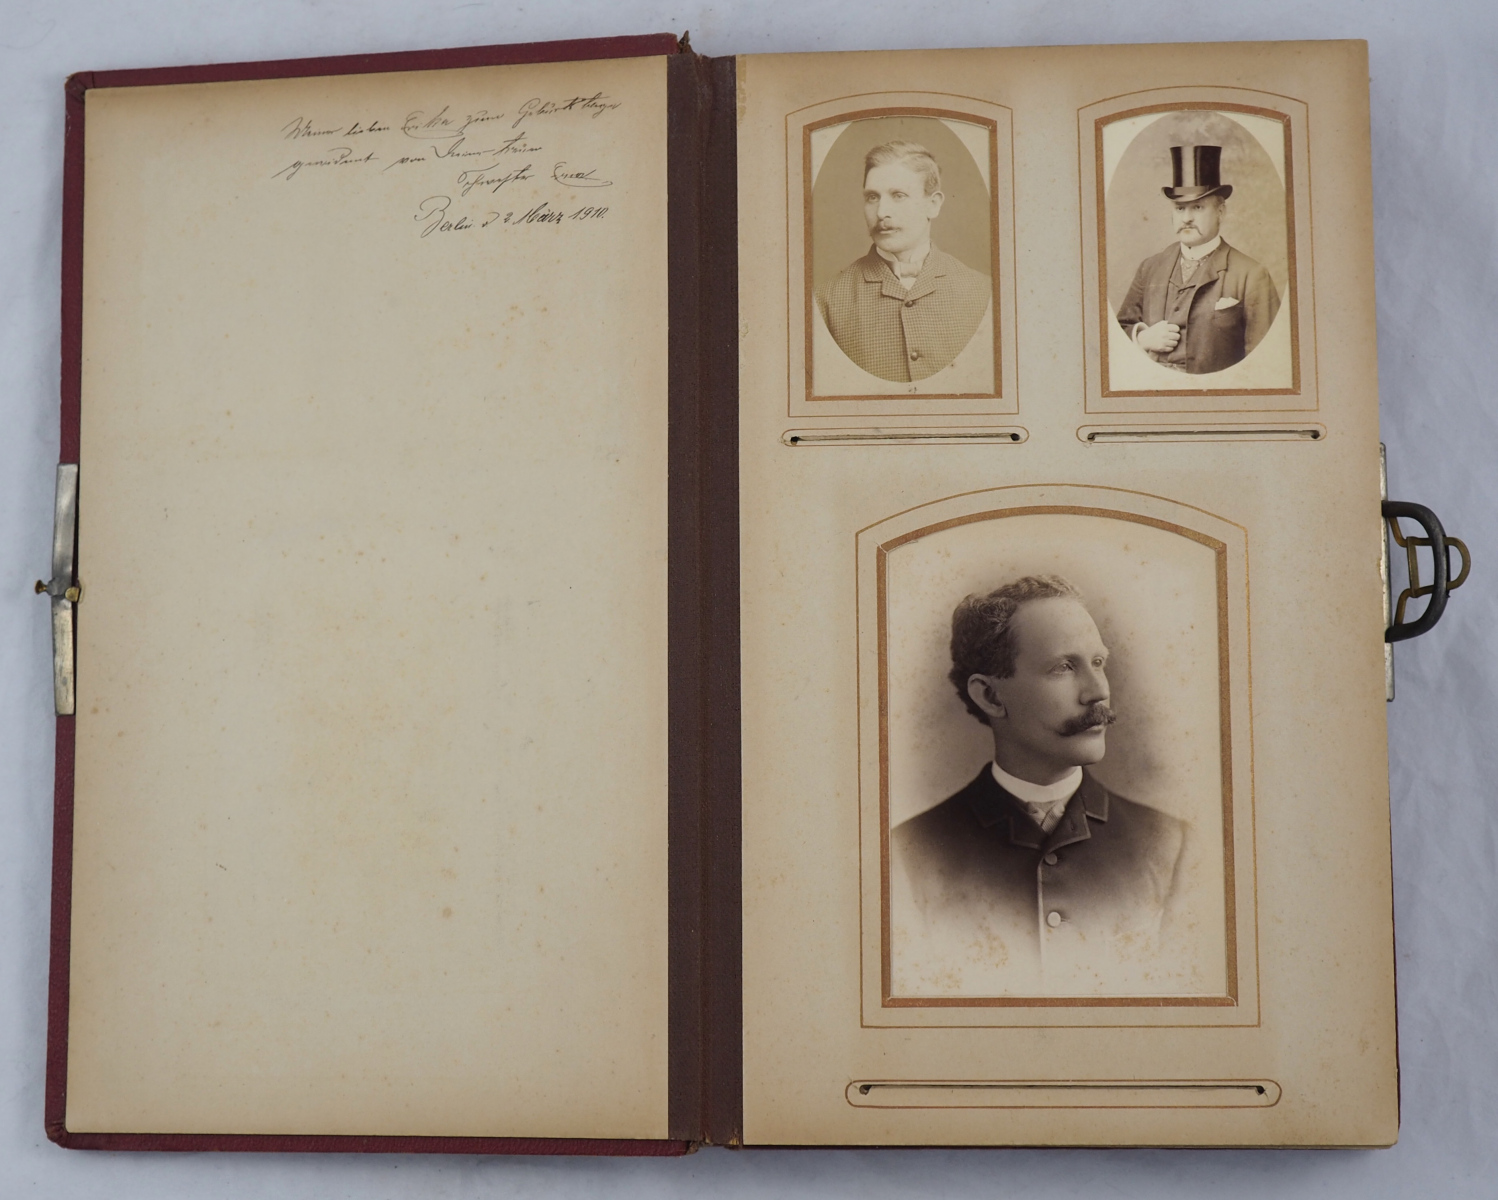 Meiner lieben Erika zum Geburtstage
gewidmet von Deiner treuen
Schwester
Berlin d 2 März 1910.